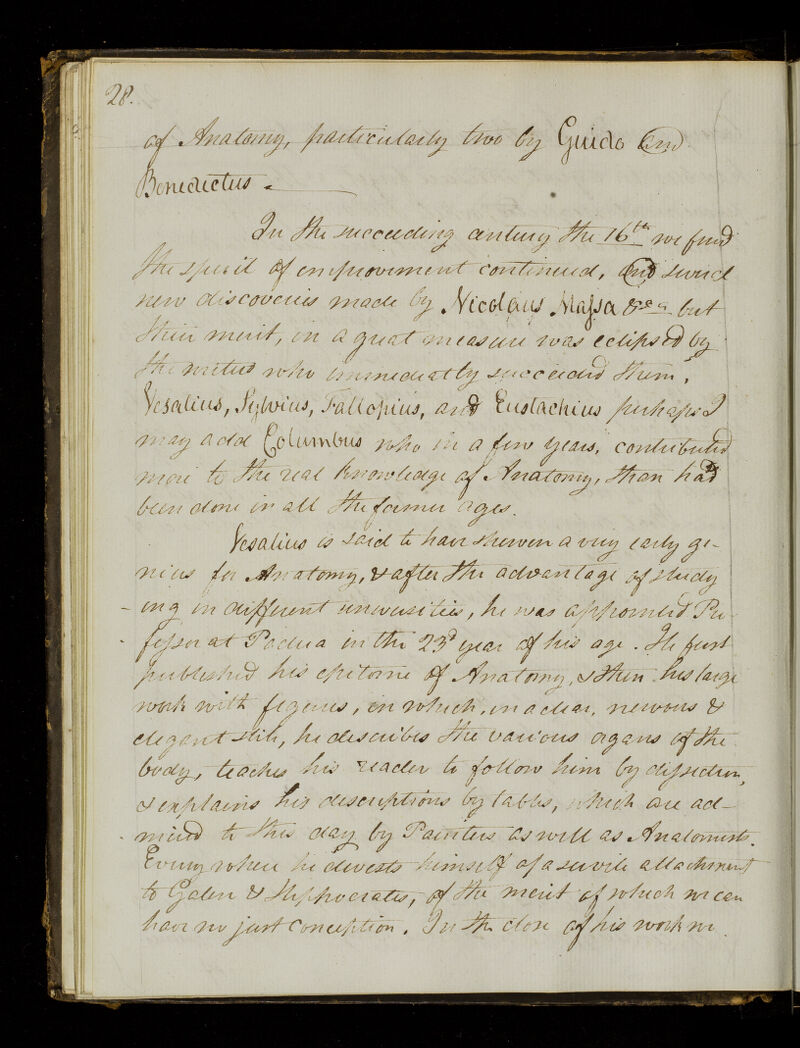 28.
of Anatomy, particularly two by Guido and
Benedictus.
In the succeeding century the 16th we find
the spirit of improvement continued, and several
new discoveries made by Nicolaus Massa &ca but
their merit, in a great measure was eclipsed by
the writers who immediatly succeeded them,
Vesalius, Sylvius, Fallopius, and Eustachius perhaps I
may add Columbus who in a few years, contributed
more to the real knowledge of Anatomy, than had
been done in all the former ages.
Vesalius is said to have shewen a very early ge-
nius for Anatomy, & after the advantage of study
-ing in different universities, he was appointed Pro-
fessor at Padua in the 23d year of his age. He first
published his epitome of Anatomy, & then his large
work with figures, in which, in a clear, nervous &
elegant stile, he describes the various organs of the
body, teaches his reader to follow him by dissection,
& explains his descriptions by tables, which are ad-
mired to this day by Painters as well as Anatomists.
Every where he divests himself of a servile attachment
to Galen & Hippocrates, of the merit of which we can
have no just conception. In the close of his work we